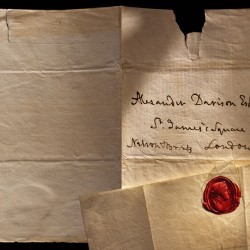 Alexander Davison Esq
St. James's Square
Nelson & Bronte London